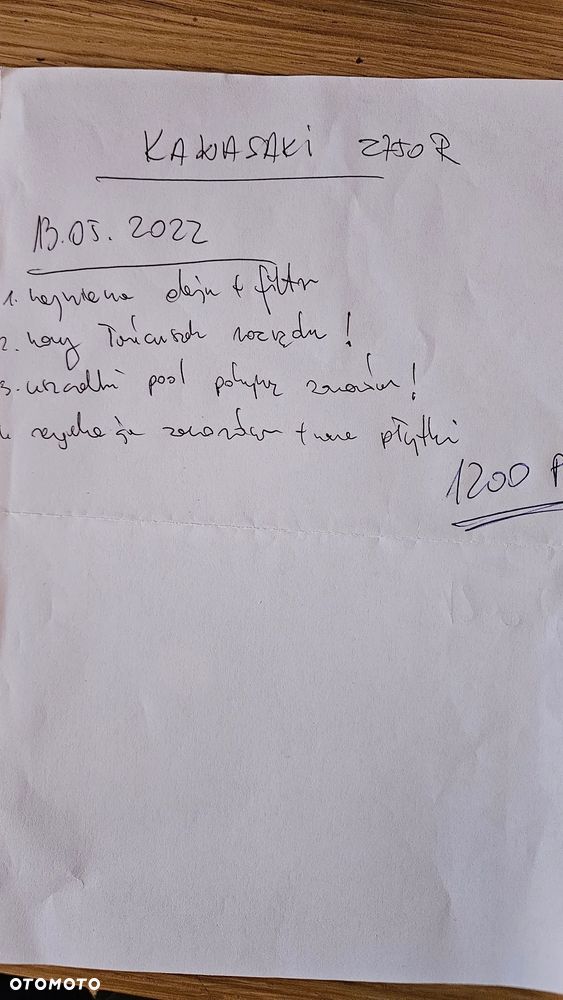 KAWASAKI Z750R
13.05.2022
1. wymiana oleju + filtr
2. nowy łańcuszek rozrządu!
3. uszczelki pod pokrywę zaworów!
regulacja zaworów + nowe płytki
1200 P
OTOMOTO